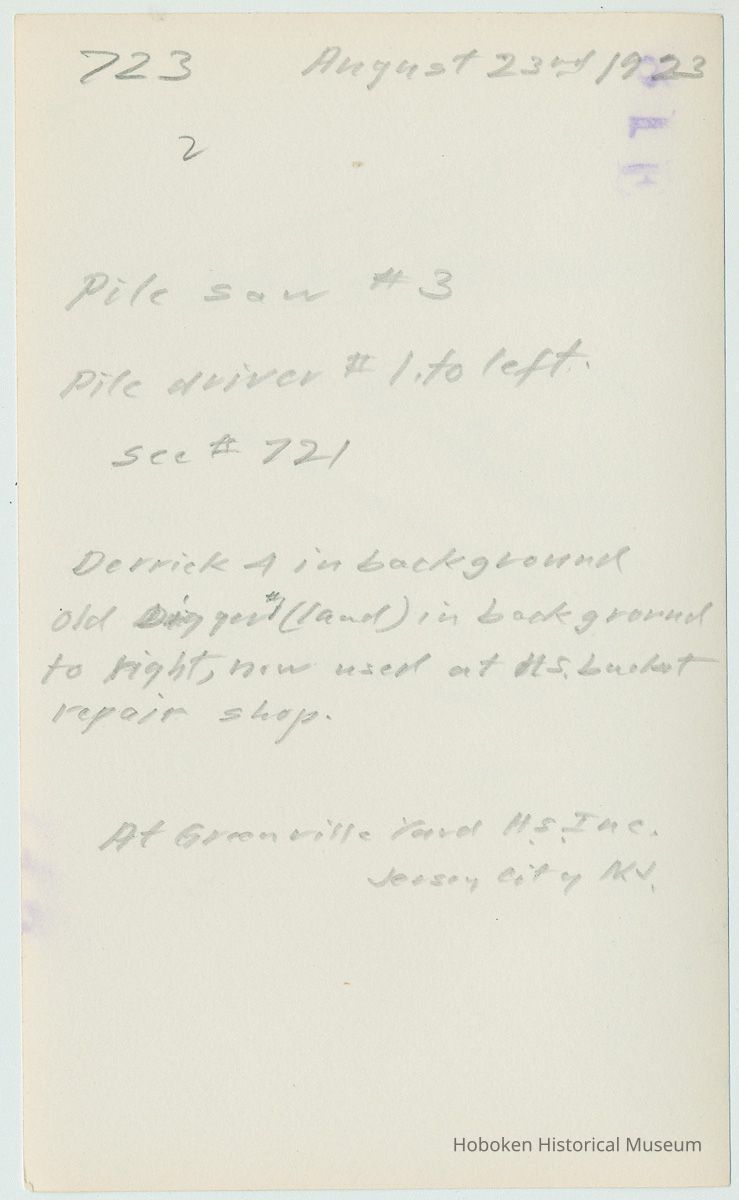 723 August 23rd 1923
2
Pile saw #3
Pile driver #1. to left.
see #721
Derrick 4 in background
old Digger #1 (land) in background
to right, now used at H.S. bucket
repair shop.
At Greenville Yard H.S. Inc.
Jersey City N.J.
Hoboken Historical Museum